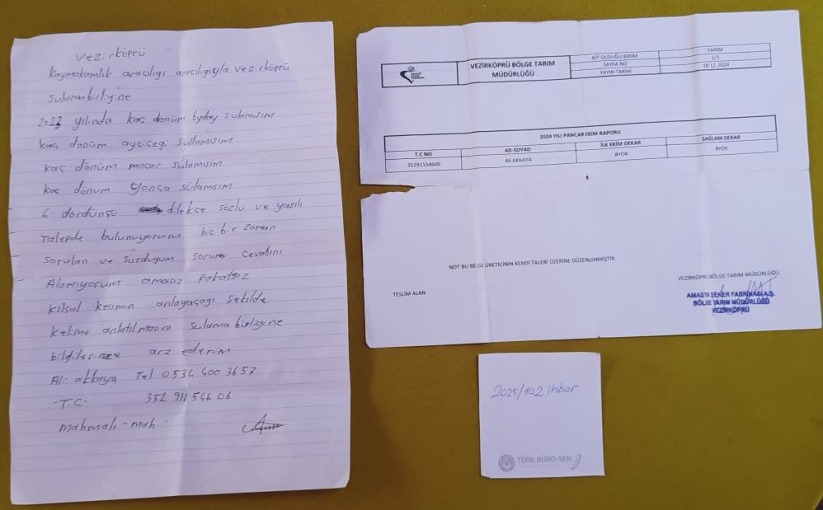 Vezirköprü
Kaymakamlık aracılığı aracılığıyla vezirköprü
sulama birliğine
2023 yılında kaç dönüm buğday sulamışım
kaç dönüm ayçiçeği sulamışım
kaç dönüm pancar sulamışım
kaç dönüm yonca sulamışım
4 dördüncü dilekçe sözlü ve yazılı
Talepde bulunuyorum hiç bir zaman
sorulan ve surduğum soruma cevabını
Alamıyorum amasız
kılsal kesimin anlayacağı şekilde
anlatılmasını sulama birliğine
bilgilerinize arz ederim
Ali akkaya Tel 0534 400 3657
T.C. 352 911 546 06
mahmalı-mah
VEZİRKÖPRÜ BÖLGE TARIM
MÜDÜRLÜĞÜ
AİT OLDUĞU BİRİM TARIM
SAYFA NO 1/1
YAYIN TARİHİ 18.12.2024
2024 YILI PANCAR EKİM RAPORU
T.C NO AD-SOYAD İLK EKİM DEKAR SAĞLAM DEKAR
35291154606 Ali AKKAYA #YOK #YOK
NOT:BU BELGE ÜRETİCİNİN KENDİ TALEBİ ÜZERİNE DÜZENLENMİŞTİR.
TESLİM ALAN
VEZİRKÖPRÜ BÖLGE TARIM MÜDÜRLÜĞÜ
AMASYA ŞEKER FABRİKASI A.Ş.
BÖLGE TARIM MÜDÜRLÜĞÜ
VEZİRKÖPRÜ
2025/102 ihbar
TÜRK BÜRO-SEN